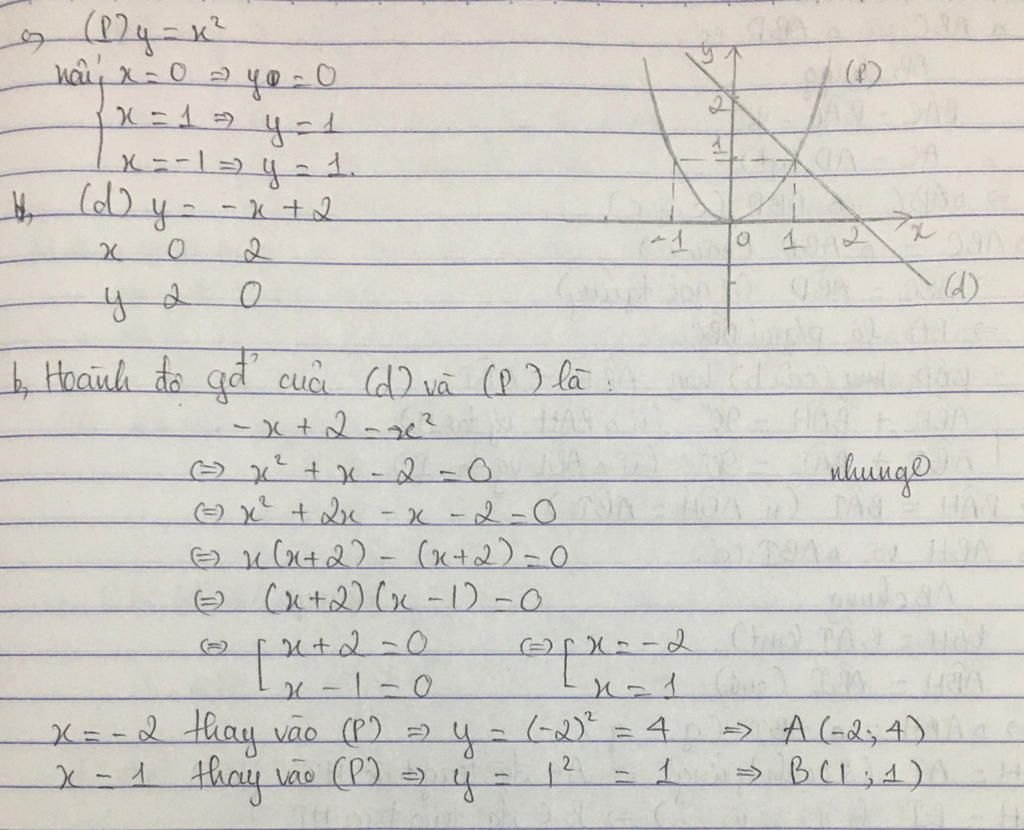 a, (P) y = x²
nếu x = 0 ⇒ y = 0
x = 1 ⇒ y = 1
x = -1 ⇒ y = 1.
(d) y = -x + 2
x 0 2
y 2 0
y
(P)
2
1
-1 0 1 2 x
(d)
b, Hoành độ gđ của (d) và (P) là :
-x + 2 = x²
⇔ x² + x - 2 = 0
nhung
⇔ x² + 2x - x - 2 = 0
⇔ x(x+2) - (x+2) = 0
⇔ (x+2)(x-1) = 0
⇔ [ x + 2 = 0 ⇔ [ x = -2
x - 1 = 0 x = 1
x = -2 thay vào (P) ⇒ y = (-2)² = 4 ⇒ A (-2; 4)
x = 1 thay vào (P) ⇒ y = 1² = 1 ⇒ B(1; 1)